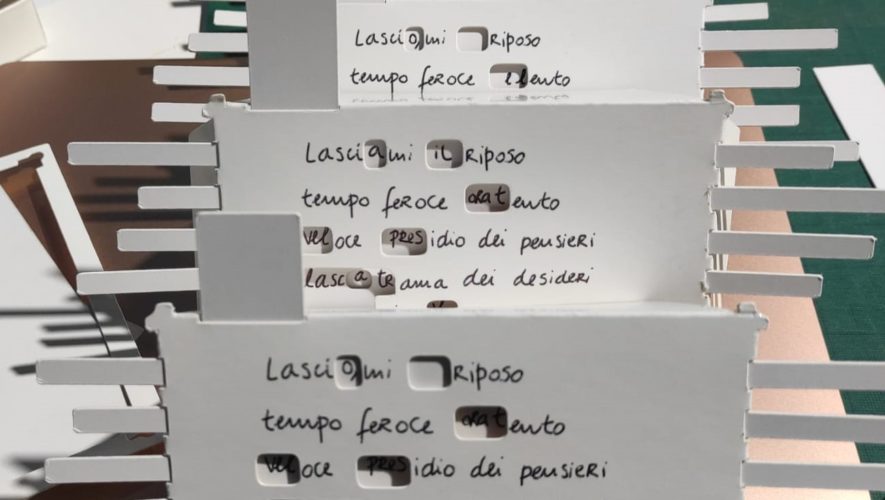 Lasciomi Riposo
tempo feroce lento
Lasciami il Riposo
tempo feroce ora tento
veloce presidio dei pensieri
lascia trama dei desideri
Lasciomi Riposo
tempo feroce ora tento
veloce presidio dei pensieri